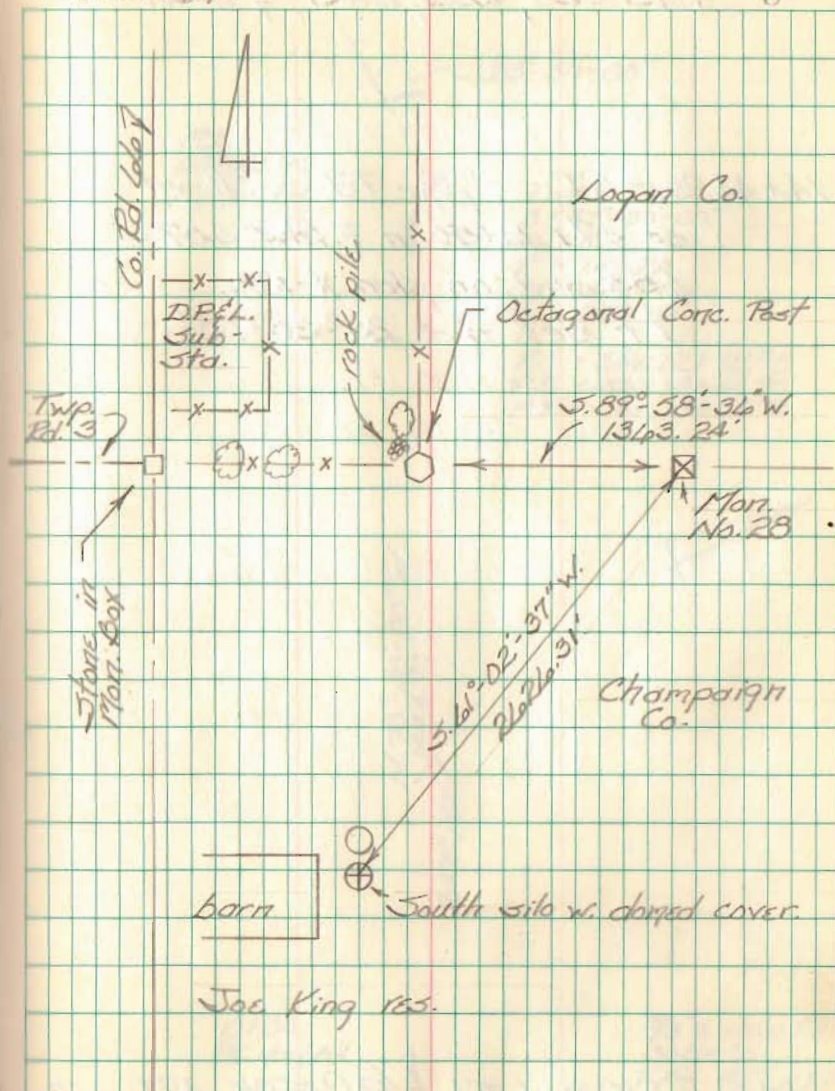 Co. Rd.
Logan Co.
rock pile
Octagonal Conc. Post
D.P.&L.
Sub-
Sta.
Twp.
Rd. 3
S.89°-58'-36"W.
1363.24'
Mon.
No. 28
Stone in
Mon. Box
S.61°-02'-37"W.
2626.31'
Champaign
Co.
barn
South silo w. domed cover.
Joe King res.